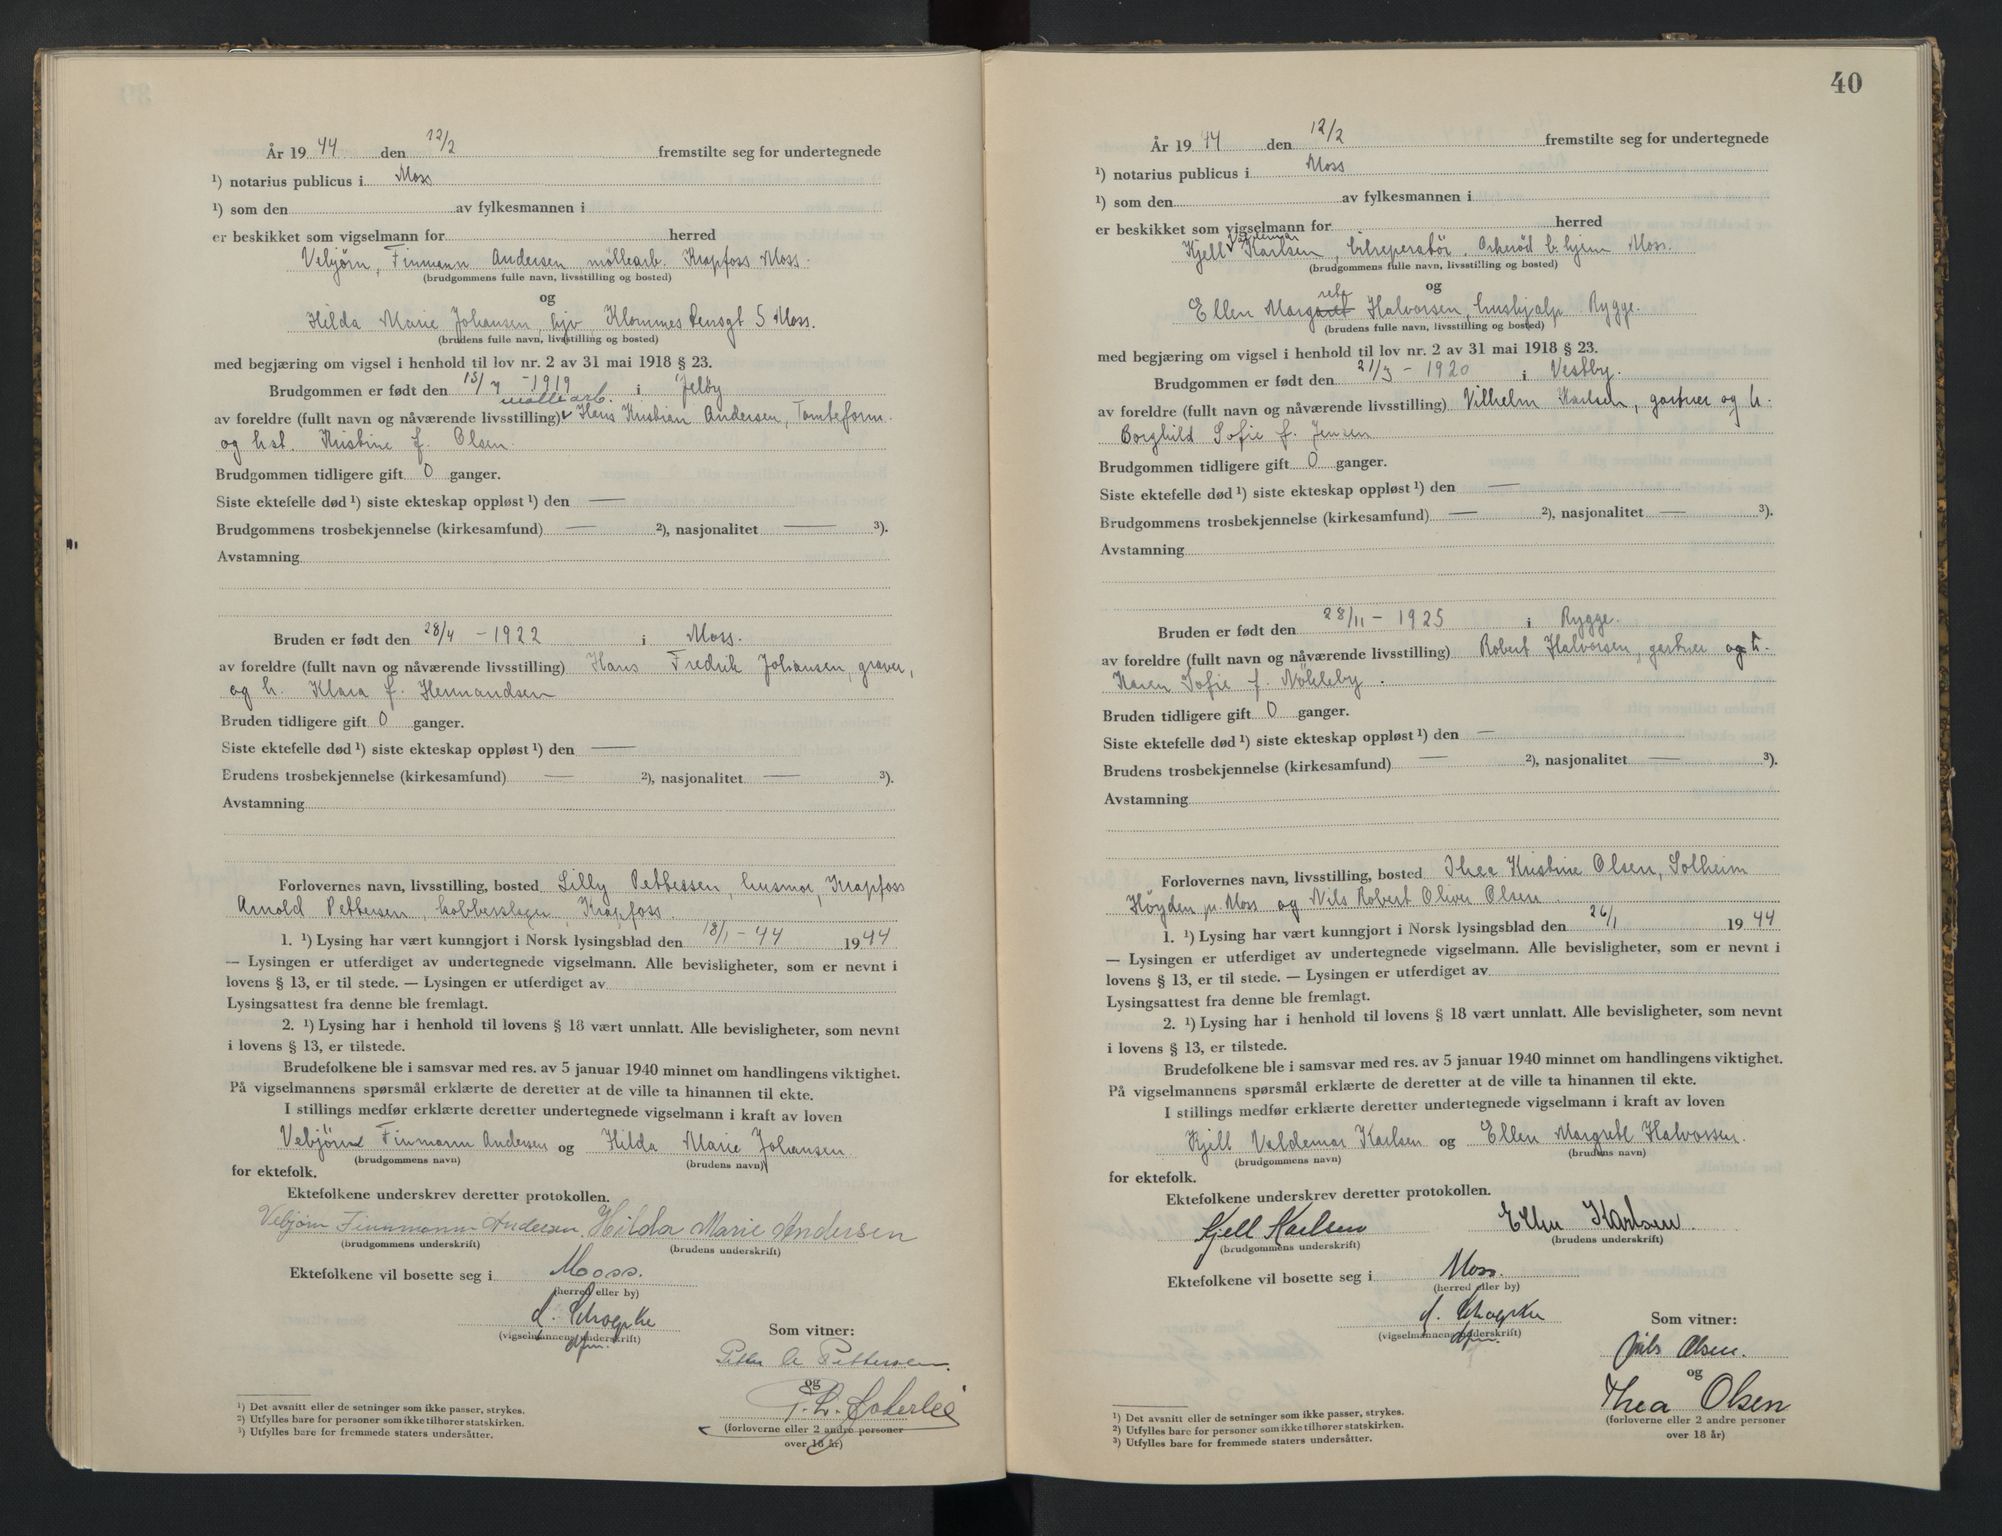 År 19 44 den 12/2 fremstilte seg for undertegnede
¹) notarius publicus i Moss
¹) som den av fylkesmannen i
er beskikket som vigselmann for herred
Vebjørn, Finmann Andersen, møllearb. Krapfoss Moss.
(brudgommens fulle navn, livsstilling og bosted)
og
Hilda Marie Johansen, hjv, Klommes 5 Moss.
(brudens fulle navn, livsstilling og bosted)
med begjæring om vigsel i henhold til lov nr. 2 av 31 mai 1918 § 23.
Brudgommen er født den 15/7 - 1919 i Jeløy
møllearb.
av foreldre (fullt navn og nåværende livsstilling) Hans Kristian Andersen, Tomteform.
og hst. Kristine f. Olsen.
Brudgommen tidligere gift 0 ganger.
Siste ektefelle død ¹) siste ekteskap oppløst ¹) den —
Brudgommens trosbekjennelse (kirkesamfund) — ²), nasjonalitet — ³).
Avstamning
Bruden er født den 28/4 - 1922 i Moss.
av foreldre (fullt navn og nåværende livsstilling) Hans Fredrik Johansen, graver,
og h. Klara f. Hermandsen
Bruden tidligere gift 0 ganger.
Siste ektefelle død ¹) siste ekteskap oppløst ¹) den —
Erudens trosbekjennelse (kirkesamfund) — ²), nasjonalitet — ³).
Avstamning
Forlovernes navn, livsstilling, bosted Lilly Pettersen, husmor, Krapfoss
Arnold Pettersen, kobberslager, Krapfoss.
1. ¹) Lysing har vært kunngjort i Norsk lysingsblad den 18/1 - 44 1944
— Lysingen er utferdiget av undertegnede vigselmann. Alle bevisligheter, som er nevnt i
lovens § 13, er til stede. — Lysingen er utferdiget av
Lysingsattest fra denne ble fremlagt.
2. ¹) Lysing har i henhold til lovens § 18 vært unnlatt. Alle bevisligheter, som nevnt
i lovens § 13, er tilstede.
Brudefolkene ble i samsvar med res. av 5 januar 1940 minnet om handlingens viktighet.
På vigselmannens spørsmål erklærte de deretter at de ville ta hinannen til ekte.
I stillings medfør erklærte deretter undertegnede vigselmann i kraft av loven
Vebjørn Finmann Andersen og Hilda Marie Johansen
(brudgommens navn) (brudens navn)
for ektefolk.
Ektefolkene underskrev deretter protokollen.
Vebjørn Finnmann Andersen. Hilda Marie Andersen
(brudgommens underskrift) (brudens underskrift)
Ektefolkene vil bosette seg i Moss.
(herred eller by)
(vigselmannens underskrift)
Som vitner:
Pettersen
og
(forloverne eller 2 andre personer
over 18 år)
¹) Det avsnitt eller de setninger som ikke passer, strykes.
²) Utfylles bare for personer som ikke tilhører statskirken.
³) Utfylles bare for fremmede staters undersåtter.
40
År 19 44 den 12/2 fremstilte seg for undertegnede
¹) notarius publicus i Moss
¹) som den av fylkesmannen i
er beskikket som vigselmann for herred
Valdemar
Kjell Karlsen, bilreperatør, Orkerød b. hjem Moss.
(brudgommens fulle navn, livsstilling og bosted)
og
rete
Ellen Margaret Halvorsen, hushjelp Rygge.
(brudens fulle navn, livsstilling og bosted)
med begjæring om vigsel i henhold til lov nr. 2 av 31 mai 1918 § 23.
Brudgommen er født den 21/3 - 1920 i Vestby.
av foreldre (fullt navn og nåværende livsstilling) Vilhelm Karlsen, gartner og h.
Borghild Sofie f. Jensen
Brudgommen tidligere gift 0 ganger.
Siste ektefelle død ¹) siste ekteskap oppløst ¹) den —
Brudgommens trosbekjennelse (kirkesamfund) — ²), nasjonalitet — ³).
Avstamning
Bruden er født den 28/11 - 1925 i Rygge.
av foreldre (fullt navn og nåværende livsstilling) Robert Halvorsen, gartner og h.
Karen Sofie f. Nökleby.
Bruden tidligere gift 0 ganger.
Siste ektefelle død ¹) siste ekteskap oppløst ¹) den —
Brudens trosbekjennelse (kirkesamfund) — ²), nasjonalitet — ³).
Avstamning
Forlovernes navn, livsstilling, bosted Thea Kristine Olsen, Solheim
Høyden pr. Moss og Nils Robert Oliver Olsen.
1. ¹) Lysing har vært kunngjort i Norsk lysingsblad den 26/1 1944
— Lysingen er utferdiget av undertegnede vigselmann. Alle bevisligheter, som er nevnt i
lovens § 13, er til stede. — Lysingen er utferdiget av
Lysingsattest fra denne ble fremlagt.
2. ¹) Lysing har i henhold til lovens § 18 vært unnlatt. Alle bevisligheter, som nevnt
i lovens § 13, er tilstede.
Brudefolkene ble i samsvar med res. av 5 januar 1940 minnet om handlingens viktighet.
På vigselmannens spørsmål erklærte de deretter at de ville ta hinannen til ekte.
I stillings medfør erklærte deretter undertegnede vigselmann i kraft av loven
Kjell Valdemar Karlsen og Ellen Margrete Halvorsen.
(brudgommens navn) (brudens navn)
for ektefolk.
Ektefolkene underskrev deretter protokollen.
Kjell Karlsen Ellen Karlsen.
(brudgommens underskrift) (brudens underskrift)
Ektefolkene vil bosette seg i Moss.
(herred eller by)
(vigselmannens underskrift)
Som vitner:
Nils Olsen.
og
Thea Olsen
(forloverne eller 2 andre personer
over 18 år)
¹) Det avsnitt eller de setninger som ikke passer, strykes.
²) Utfylles bare for personer som ikke tilhører statskirken.
³) Utfylles bare for fremmede staters undersåtter.